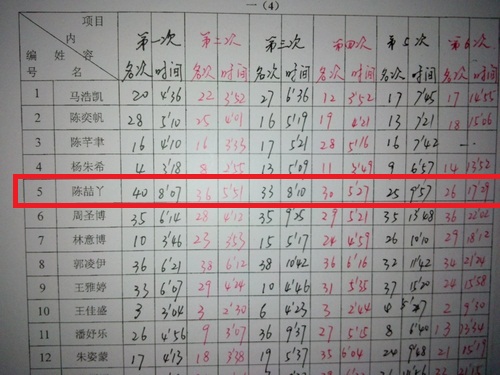 一（4）
项目 第一次 第二次 第三次 第四次 第5次 第6次
内
编 姓 容 名次 时间 名次 时间 名次 时间 名次 时间 名次 时间 名次 时间
号 名
1 马浩凯 20 4'36 22 3'52 27 6'36 12 3'52 17 7'45 17 14'55
2 陈奕帆 28 5'10 25 4'01 19 4'21 13 7'21 18 15'06
3 陈芊聿 16 4'10 16 3'33 17 5'21 28 5'16 16 7'42 —
4 杨朱希 4 3'18 8 2'55 13 5'09 11 3'49 9 6'57 14 13'52
5 陈喆丫 40 8'07 36 5'51 33 8'10 30 5'27 25 9'57 26 17'29
6 周圣博 35 6'14 28 4'12 35 9'25 29 5'21 35 13'48 36 22'02
7 林意博 10 3'46 23 3'53 15 5'17 24 4'59 26 10'10 29 18'12
8 郭凌伊 36 6'21 38 6'12 38 10'42 36 6'16 32 11'42 34 21'24
9 王雅婷 33 6'07 29 4'24 10 4'46 31 5'35 37 15'20 24 15'58
10 王佳盛 3 3'04 3 2'30 6 4'23 3 2'44 4 2 9'30
11 潘妤乐 26 4'56 9 3'07 36 9'37 27 5'15 8 6'40 13 13'34
12 朱姿蒙 17 4'13 18 3'38 19 5'37 35 6'04 24 9'48 21 15'19